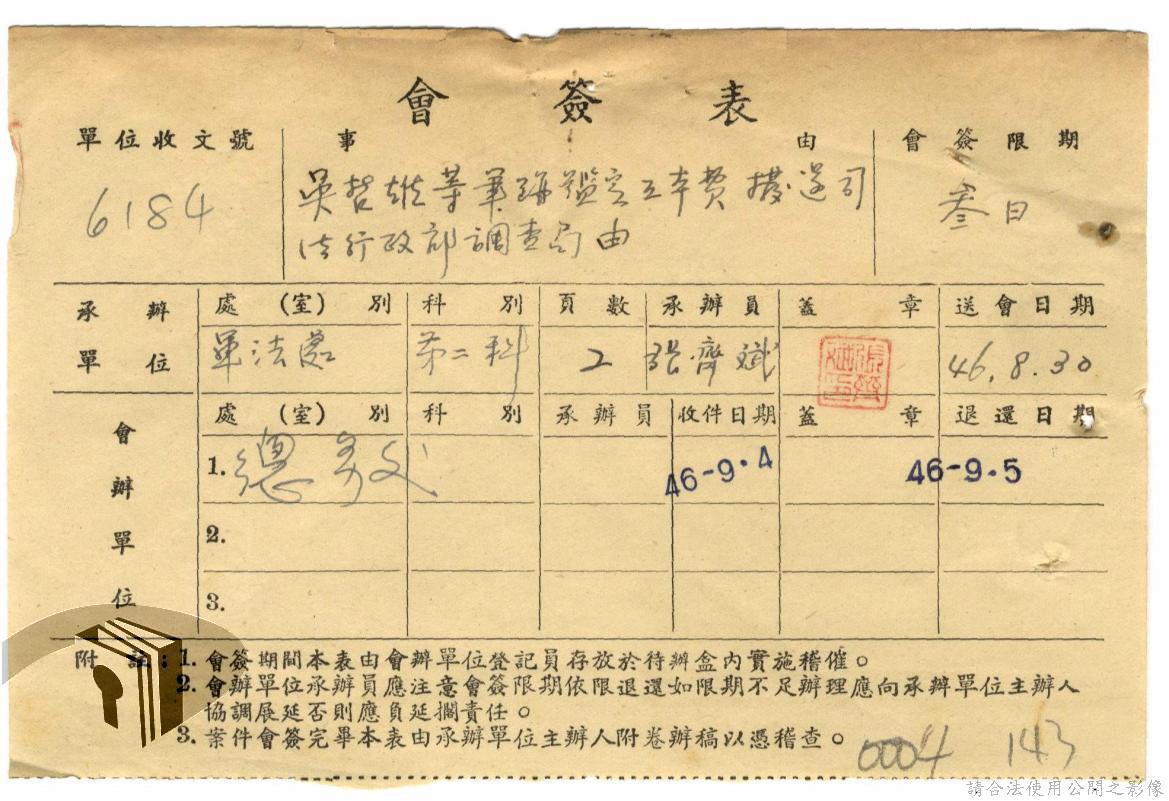 會簽表
單位收文號 事由 會簽限期
6184 吳哲雄等筆跡鑑定工本費撥送司 叁日
法行政部調查局由
承辦單位 處(室)別 科別 頁數 承辦員 蓋章 送會日期
軍法處 第二科 2 張齊斌 46.8.30
會辦單位 處(室)別 科別 承辦員 收件日期 蓋章 退還日期
1. 總務处 46-9.4 46-9.5
2.
3.
附註:1. 會簽期間本表由會辦單位登記員存放於待辦盒內實施稽催。
2. 會辦單位承辦員應注意會簽限期依限退還如限期不足辦理應向承辦單位主辦人
協調展延否則應負延擱責任。
3. 案件會簽完畢本表由承辦單位主辦人附卷辦稿以憑稽查。
0004 143
請合法使用公開之影像